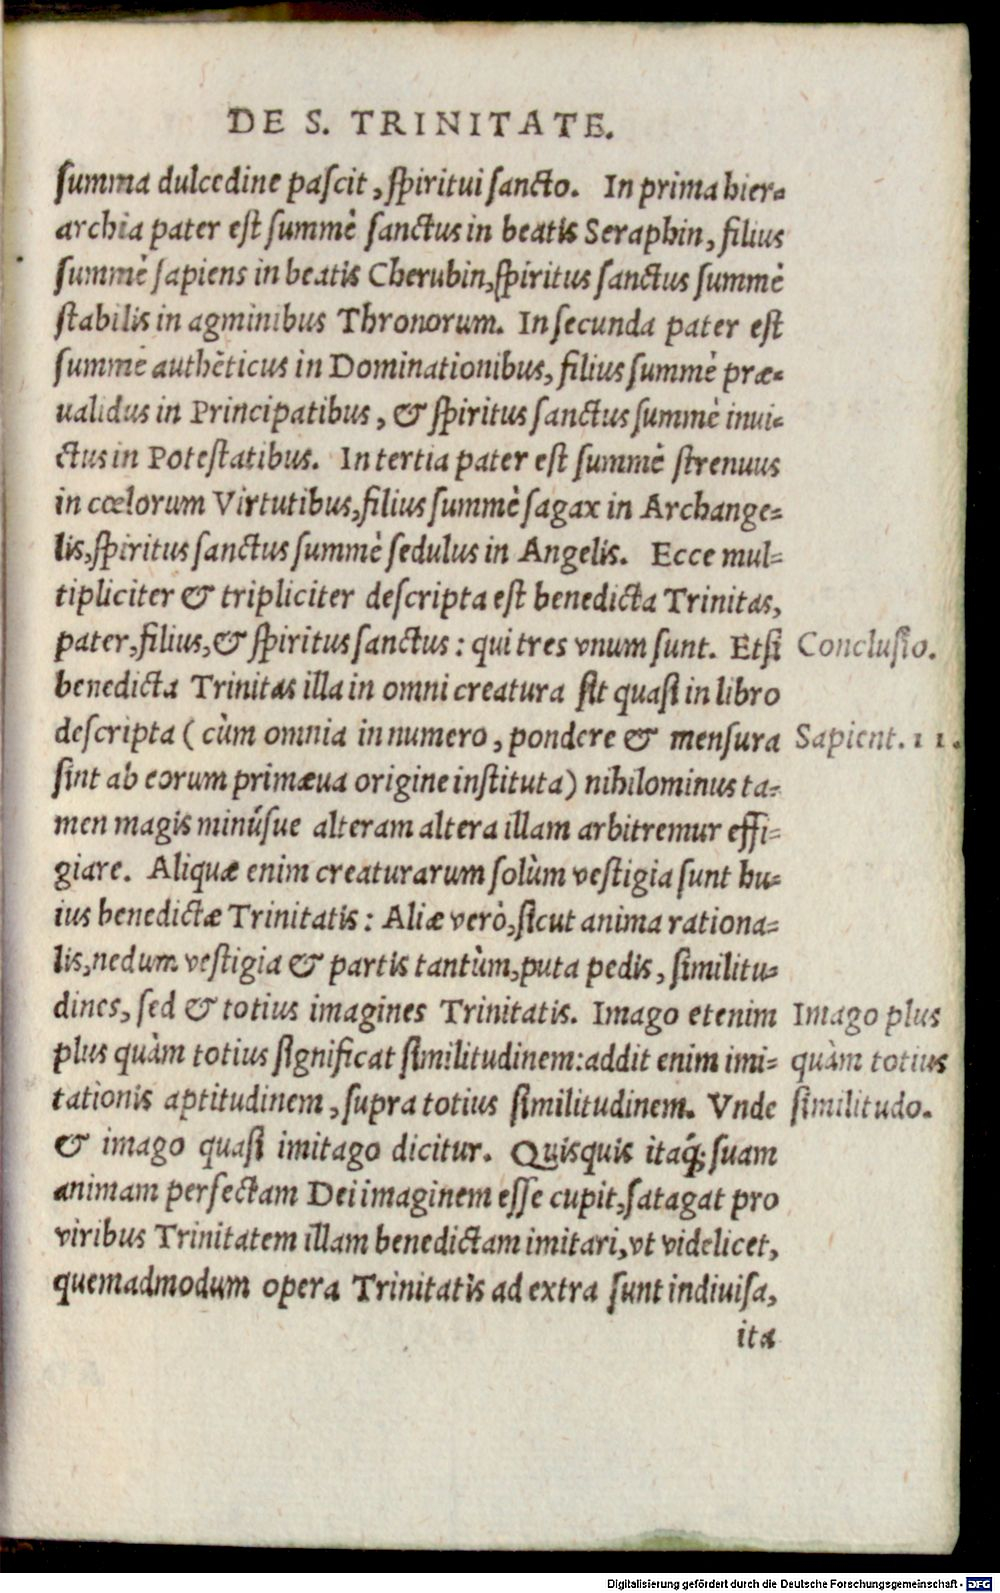 DE S. TRINITATE.
summa dulcedine pascit, spiritui sancto. In prima hier-
archia pater est summè sanctus in beatis Seraphin, filius
summè sapiens in beatis Cherubin, spiritus sanctus summè
stabilis in agminibus Thronorum. In secunda pater est
summè authẽticus in Dominationibus, filius summè præ-
ualidus in Principatibus, & spiritus sanctus summè inui-
ctus in Potestatibus. In tertia pater est summè strenuus
in cœlorum Virtutibus, filius summè sagax in Archange-
lis, spiritus sanctus summè sedulus in Angelis. Ecce mul-
tipliciter & tripliciter descripta est benedicta Trinitas,
pater, filius, & spiritus sanctus: qui tres vnum sunt. Etsi
Conclusio.
benedicta Trinitas illa in omni creatura sit quasi in libro
descripta (cùm omnia in numero, pondere & mensura
Sapient. 11.
sint ab eorum primæua origine instituta) nihilominus ta-
men magis minúsue alteram altera illam arbitremur effi-
giare. Aliquæ enim creaturarum solùm vestigia sunt hu-
ius benedictæ Trinitatis: Aliæ verò, sicut anima rationa-
lis, nedum vestigia & partis tantùm, puta pedis, similitu-
dines, sed & totius imagines Trinitatis. Imago etenim
plus quàm totius significat similitudinem: addit enim imi-
tationis aptitudinem, supra totius similitudinem. Vnde
Imago plus
quàm totius
similitudo.
& imago quasi imitago dicitur. Quisquis itaq́; suam
animam perfectam Dei imaginem esse cupit, satagat pro
viribus Trinitatem illam benedictam imitari, vt videlicet,
quemadmodum opera Trinitatis ad extra sunt indiuisa,
ita
Digitalisierung gefördert durch die Deutsche Forschungsgemeinschaft - DFG